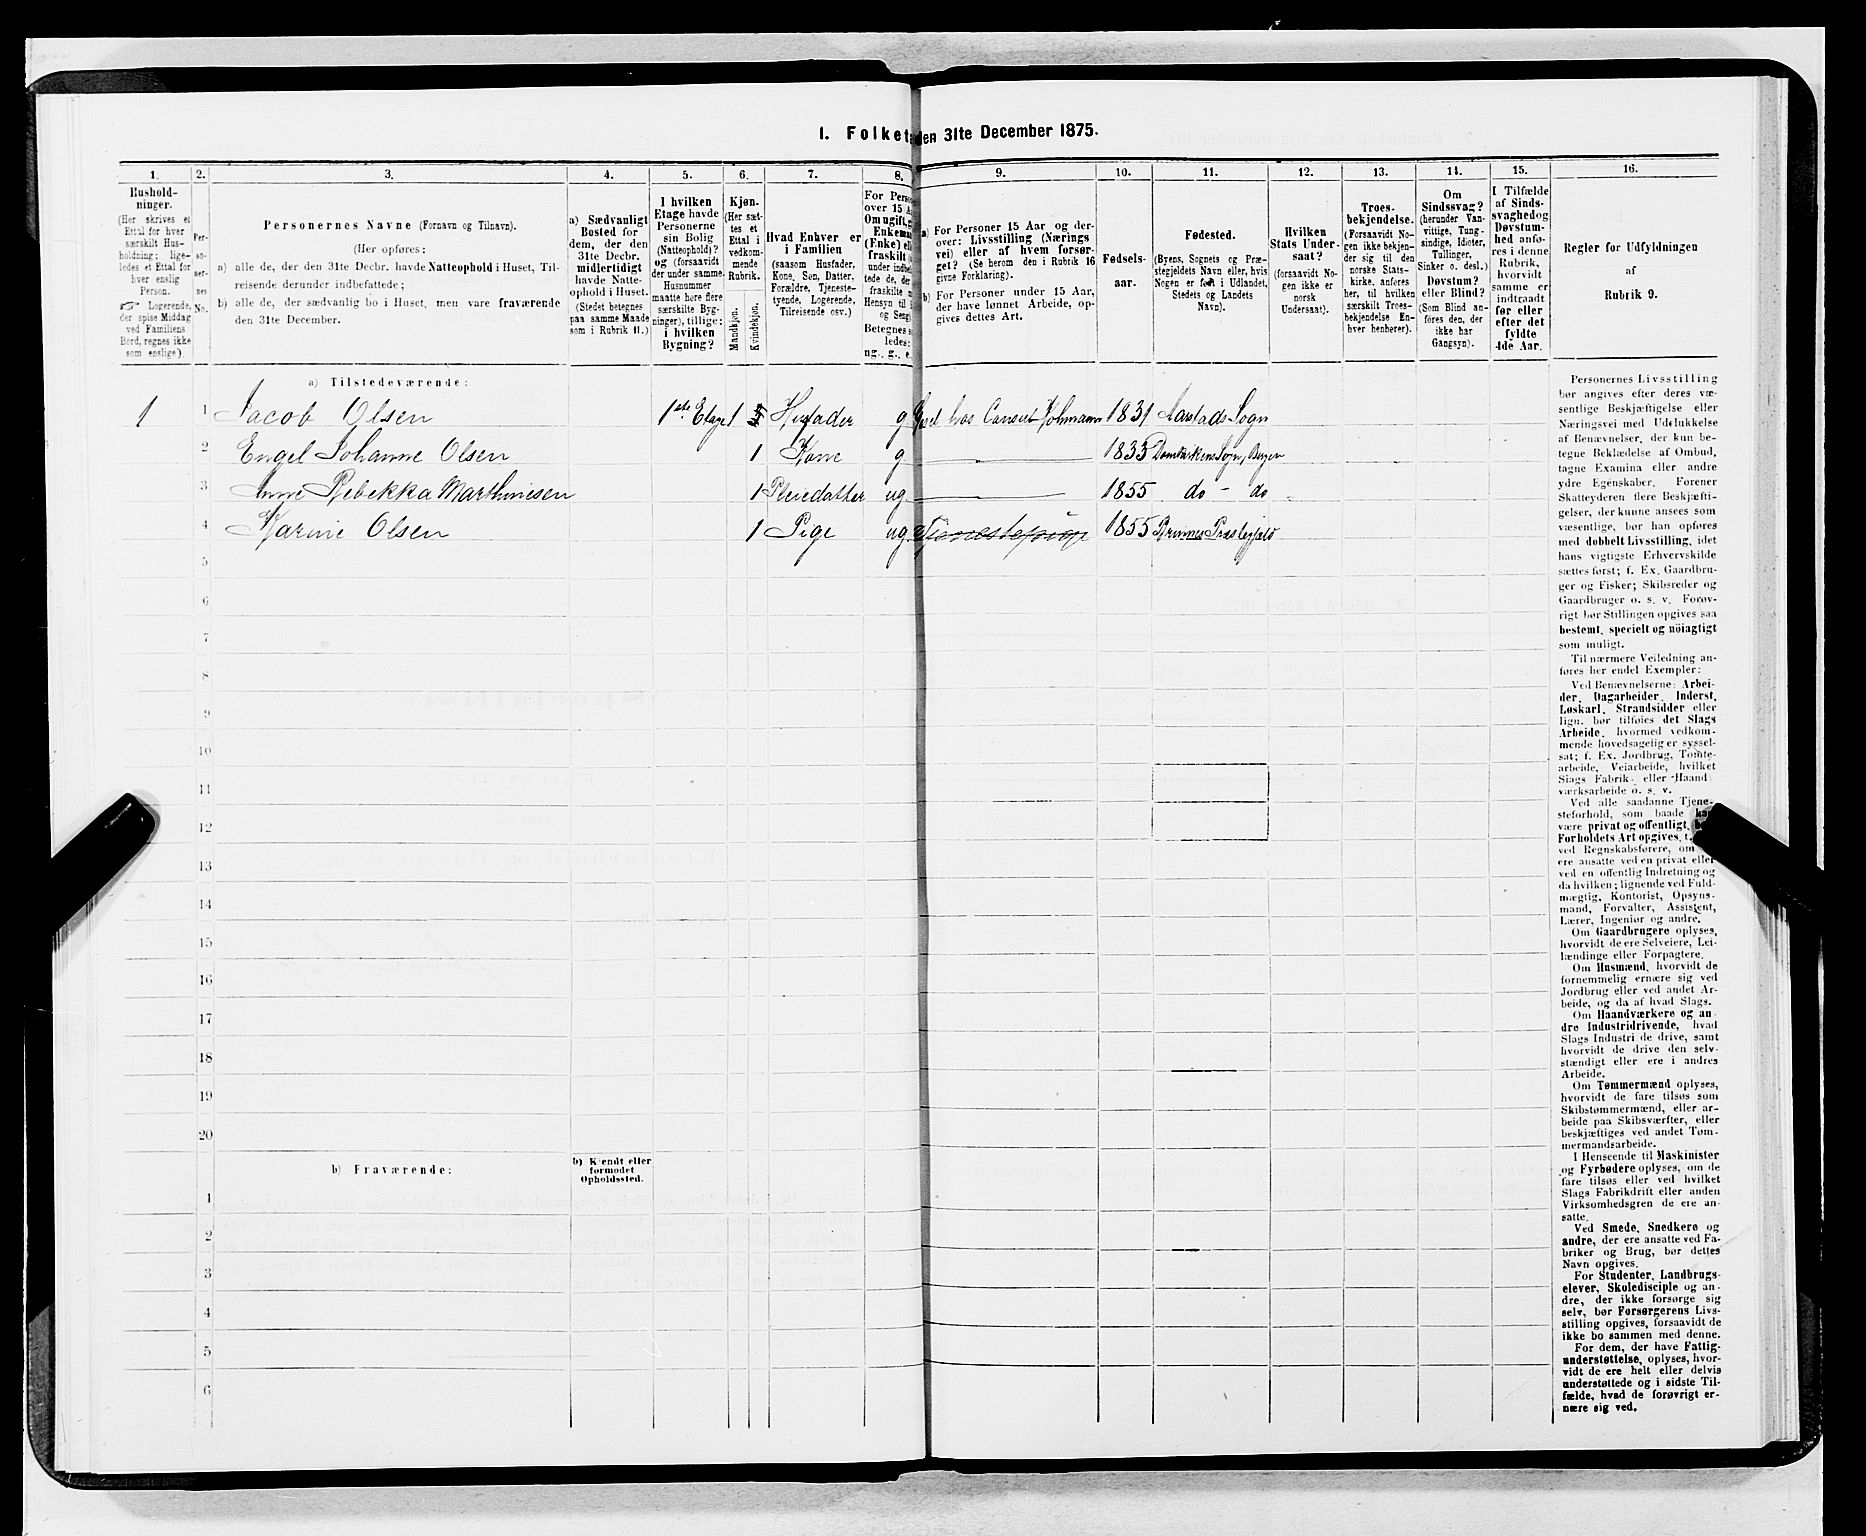 1. Folket den 31te December 1875.
1. 2. 3. 4. 5. 6. 7. 8. 9. 10. 11. 12. 13. 14. 15. 16.
Hushold-
ninger.
(Her skrives et
Ettal for hver
særskilt Hus-
holdning; lige-
ledes et Ettal for
hver enslig
Person.
☞ Logerende,
der spise Middag
ved Familiens
Bord, regnes ikke
som enslige).
Per-
so-
ner-
nes
No.
Personernes Navne (Fornavn og Tilnavn).
(Her opføres:
a) alle de, der den 31te Decbr. havde Natteophold i Huset, Til-
reisende derunder indbefattede;
b) alle de, der sædvanlig bo i Huset, men vare fraværende
den 31te December.
a) Sædvanligt
Bosted for
dem, der den
31te Decbr.
midlertidigt
havde Natte-
ophold i Huset.
(Stedet betegnes
paa samme Maade
som i Rubrik 11.)
I hvilken
Etage havde
Personerne
sin Bolig
(Natteophold)?
og (forsaavidt
der under samme
Husnummer
maatte høre flere
særskilte Byg-
ninger), tillige:
i hvilken
Bygning?
Kjøn.
(Her sæt-
tes et
Ettal i
vedkom-
mende
Rubrik.
Mandkjøn.
Kvindekjøn.
Hvad Enhver er
i Familien
(saasom Husfader,
Kone, Søn, Datter,
Forældre, Tjeneste-
tyende, Logerende,
Tilreisende osv.)
For Perso
over 15 A
Om ugift, g
Enkema
(Enke) el
fraskilt
under indbe
tede de, der
fraskilte
Hensyn til
og Seng
Betegnes s
ledes:
ug., g., e.
a) For Personer 15 Aar og der-
over: Livsstilling (Nærings
vei) eller af hvem forsør-
get? (Se herom den i Rubrik 16
givne Forklaring).
b) For Personer under 15 Aar,
der have lønnet Arbeide, op-
gives dettes Art.
Fødsels-
aar.
Fødested.
(Byens, Sognets og Præ-
stegjeldets Navn eller, hvis
Nogen er født i Udlandet,
Stedets og Landets
Navn).
Hvilken
Stats Under-
saat?
(forsaavidt No-
gen ikke er
norsk
Undersaat).
Troes-
bekjendelse.
(Forsaavidt No-
gen ikke bekjen-
der sig til den
norske Stats-
kirke, anføres
her, til hvilken
særskilt Troes-
bekjendelse En-
hver henhører).
Om
Sindssvag?
(herunder Van-
vittige, Tung-
sindige, Idioter,
Tullinger,
Sinker o. desl.)
Døvstum?
eller Blind?
(Som Blind an-
føres den, der
ikke har
Gangsyn).
I Tilfælde
af Sinds-
svaghed og
Døvstum-
hed anfø-
res i denne
Rubrik,
hvorvidt
samme er
indtraadt
før eller
efter det
fyldte
4de Aar.
Regler for Udfyldningen
af
Rubrik 9.
a) Tilstedeværende:
1 1 Jacob Olsen 1ste Etage 1 Husfader g hos Consul 1831 Aarstads Sogn
2 Engel Johanne Olsen 1 Kone g 1833 Domkirkens Sogn, Bergen
3 Anne Rebekka Marthinesen 1 Pleiedatter ug 1855 do - do
4 Karine Olsen 1 Pige ug Tjenestepige 1855
5
6
7
8
9
10
11
12
13
14
15
16
17
18
19
20
b) Fraværende:
b) Kjendt eller
formodet
Opholdssted.
1
2
3
4
5
6
Personernes Livsstilling
bør angives efter deres væ-
sentlige Beskjæftigelse eller
Næringsvei med Udelukkelse
af Benævnelser, der kun be-
tegne Beklædelse af Ombud,
tagne Examina eller andre
ydre Egenskaber. Forener
Skatteyderen flere Beskjæfti-
gelser, der kunne ansees som
væsentlige, bør han opføres
med dobbelt Livsstilling, idet
hans vigtigste Erhvervskilde
sættes først; f. Ex. Gaardbru-
ger og Fisker; Skibsreder og
Gaardbruger o. s. v. Forøv-
rigt bør Stillingen opgives saa
bestemt, specielt og nöiagtigt
som muligt.
Til nærmere Veiledning an-
føres her endel Exempler:
Ved Benævnelserne: Arbei-
der, Dagarbeider, Inderst,
Løskarl, Strandsidder eller
lign. bør tilføies det Slags
Arbeide, hvormed vedkom-
mende hovedsagelig er syssel-
sat; f. Ex. Jordbrug, Tomte-
arbeide, Veiarbeide, hvilket
Slags Fabrik- eller Haand
værksarbeide o. s. v.
Ved alle saadanne Tjene-
steforhold, som baade ka
være privat og offentligt,
Forholdets Art opgives,
ved Regnskabsførere, om
ere ansatte ved en privat eller
ved en offentlig Indretning og
da hvilken; lignende ved Fuld-
mægtig, Kontorist, Opsyns-
mand, Forvalter, Assistent,
Lærer, Ingeniør og andre.
Om Gaardbrugere oplyses,
hvorvidt de ere Selveiere, Lei-
lændinge eller Forpagtere.
Om Husmænd, hvorvidt de
fornemmelig ernære sig ved
Jordbrug eller ved andet Ar-
beide, og da af hvad Slags.
Om Haandværkere og an-
dre Industridrivende, hvad
Slags Industri de drive, samt
hvorvidt de drive den selv-
stændigt eller ere i andres
Arbeide.
Om Tømmermænd oplyses,
hvorvidt de fare tilsøs som
Skibstømmermænd, eller ar-
beide paa Skibsværfter, eller
beskjæftiges ved andet Tøm-
mermandsarbeide.
I Henseende til Maskinister
og Fyrbødere oplyses, om de
fare tilsøs eller ved hvilket
Slags Fabrikdrift eller anden
Virksomhedsgren de ere an-
satte.
Ved Smede, Snedkere og
andre, der ere ansatte ved Fa-
briker og Brug, bør dettes
Navn opgives.
For Studenter, Landbrugs-
elever, Skoledisciple og an-
dre, der ikke forsørge sig
selv, bør Forsørgerens Livs-
stilling opgives, forsaavidt de
ikke bo sammen med denne.
For dem, der have Fattig-
understøttelse, oplyses, hvor-
vidt de ere helt eller delvis
understøttede og i sidste Til-
fælde, hvad de forøvrigt er-
nære sig ved.